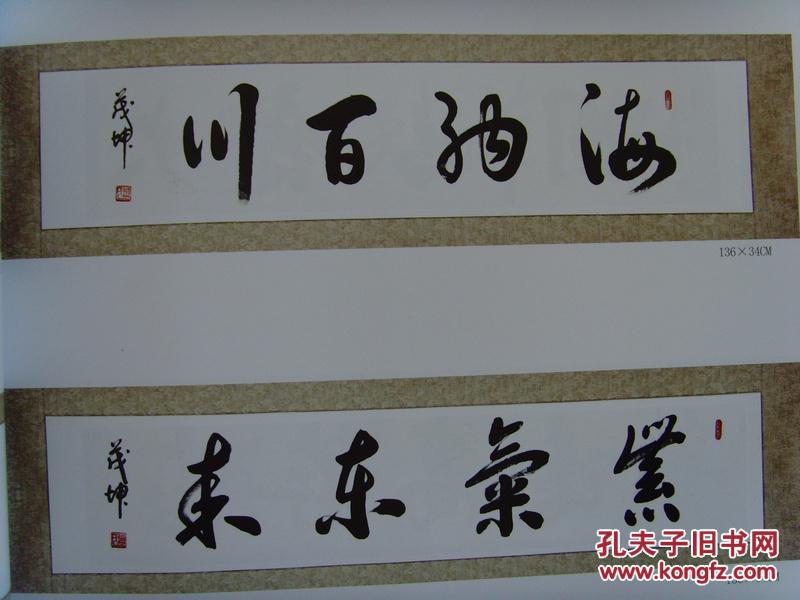 海纳百川
茂坤
136×34CM
紫氣东来
茂坤
孔夫子旧书网
www.kongfz.com